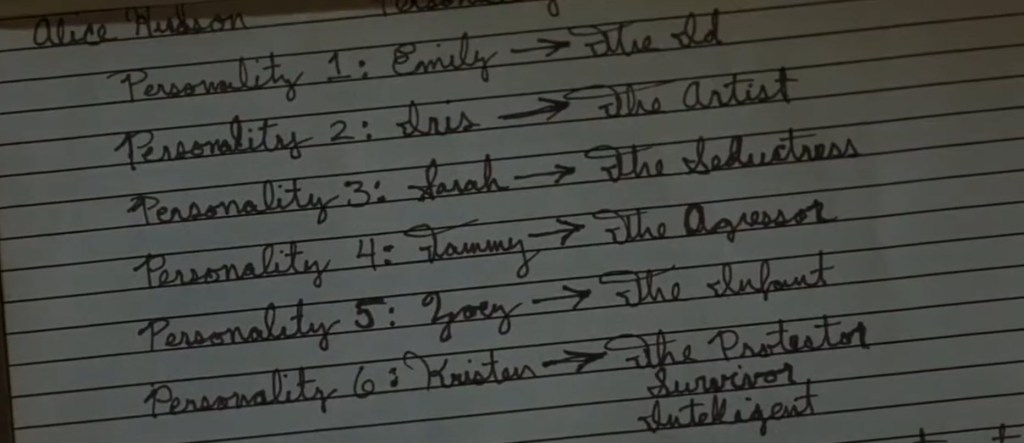 Alice Hudson
Personality 1: Emily → The Id
Personality 2: Iris → The Artist
Personality 3: Sarah → The Seductress
Personality 4: Tammy → The Agressor
Personality 5: Zoey → The Infant
Personality 6: Kristen → The Protestor
Survivor
Intelligent